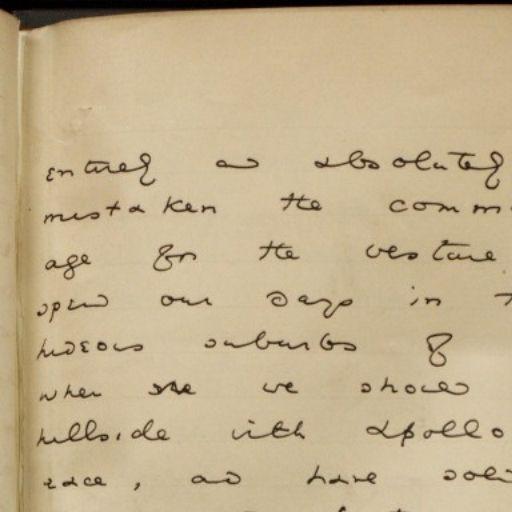 entirely and absolutely
mistaken the comm
age for the vesture
spend our days in
hideous suburbs of
when we should
hillside with Apollo
race, and have sold